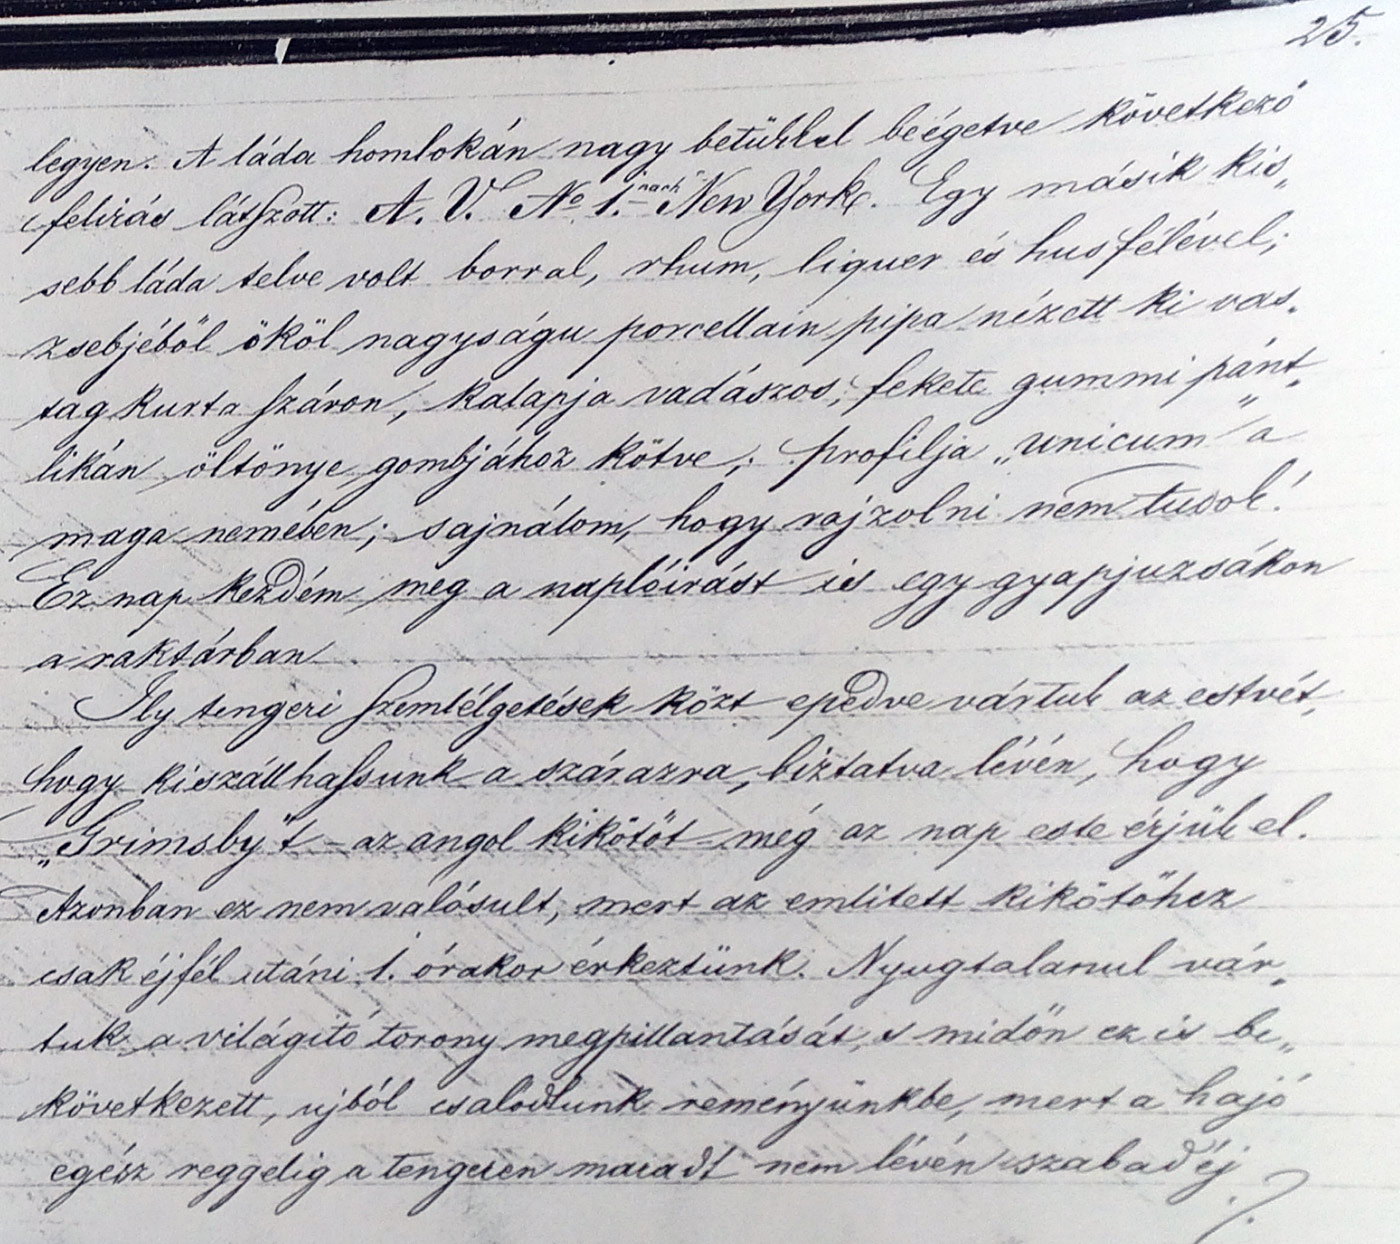 25.
legyen. A láda homlokán nagy betükkel beégetve következő
felirás látszott: A. V. No 1. nach New York. Egy másik kis„
sebb láda telve volt borral, rhum, liquer és husfélével;
zsebjéböl ököl nagyságu porcellain pipa nézett ki vas„
tag kurta száron, kalapja vadászos; fekete gummi pánt„
likán öltönye gombjához kötve; profilja „unicum" a
maga nemében; sajnálom, hogy rajzolni nem tudok!
Ez nap kezdém meg a naplóirást is egy gyapjuzsákon
a raktárban
Ily tengeri szemlélgetések közt epedve vártuk az estvét,
hogy kiszállhassunk a szárazra, biztatva lévén, hogy
„Grimsby"t – az angol kikötöt – még az nap este érjük el.
Azonban ez nem valósult, mert az emlitett kikötöhez
csak éjfél utáni 1. órakor érkeztünk. Nyugtalanul vár„
tuk a világitó torony megpillantását, s midön ez is be„
következett, ujból csalodtunk reményünkbe, mert a hajó
egész reggelig a tengeren maradt nem lévén szabad éj